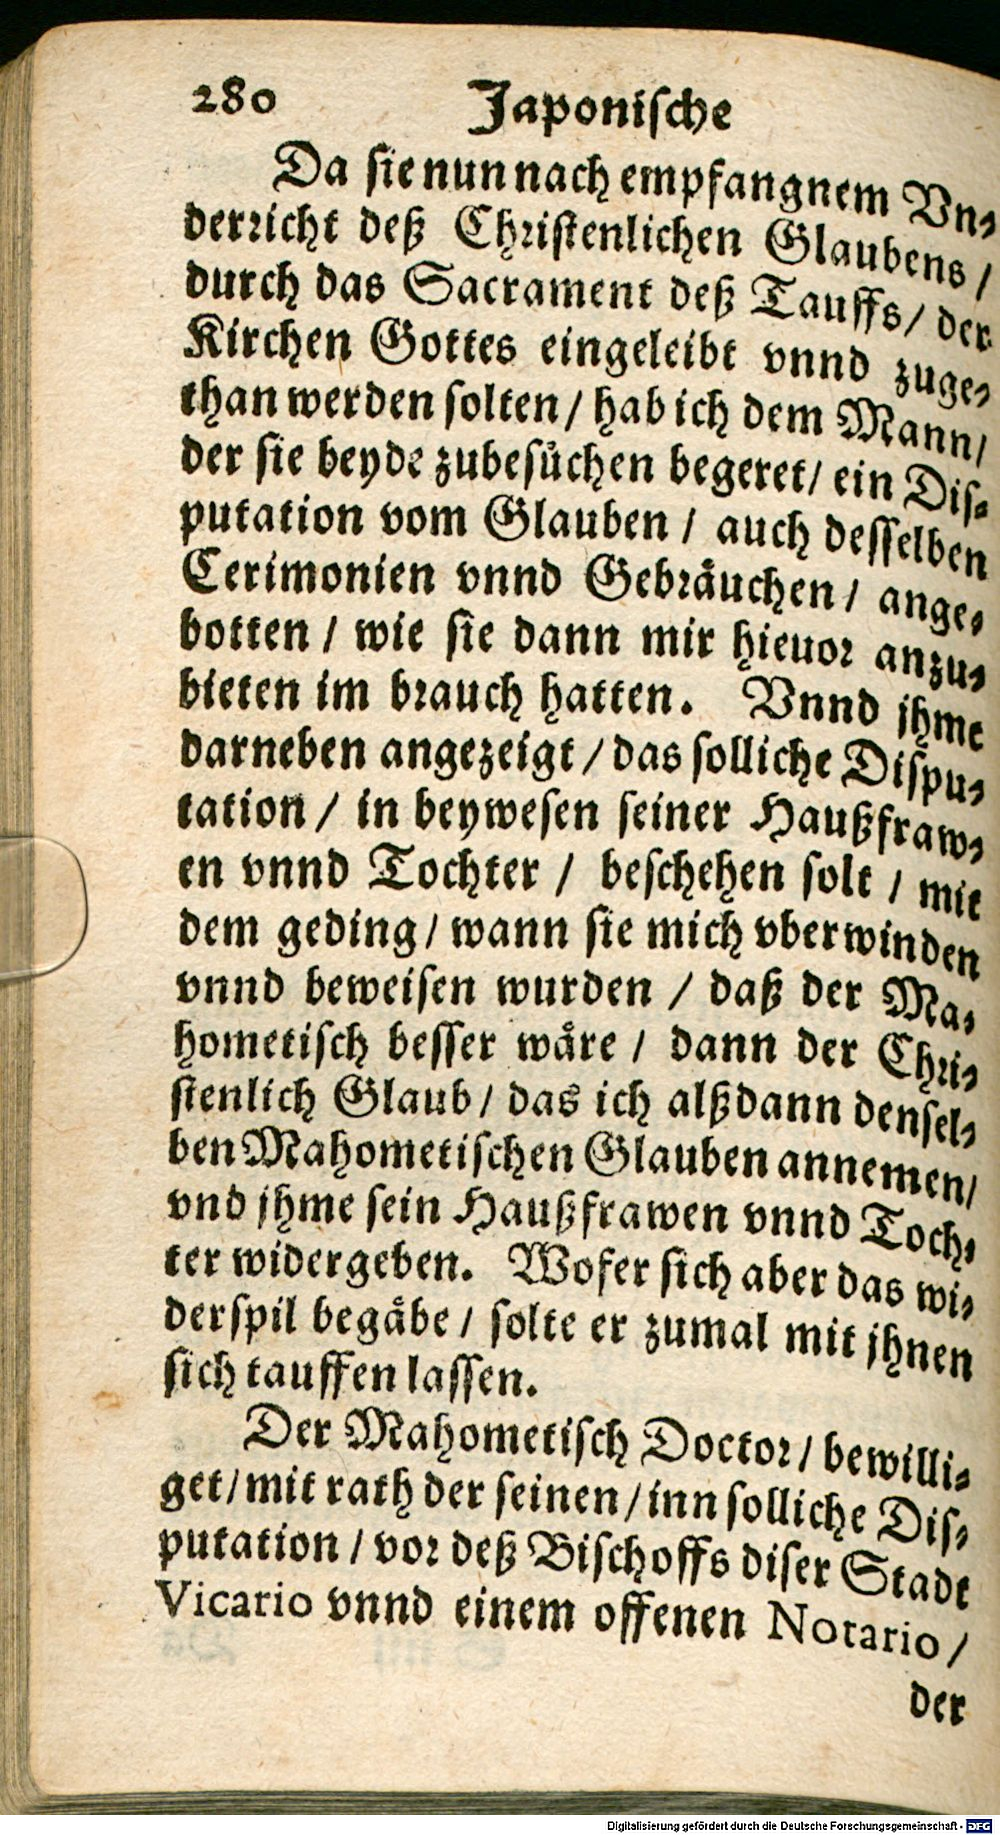 280 Japonische
Da sie nun nach empfangnem Vn⸗
derricht deß Christenlichen Glaubens /
durch das Sacrament deß Tauffs / der
Kirchen Gottes eingeleibt vnnd zuge⸗
than werden solten / hab ich dem Mann /
der sie beyde zubesůchen begeret / ein Dis⸗
putation vom Glauben / auch desselben
Cerimonien vnnd Gebräuchen / ange⸗
botten / wie sie dann mir hieuor anzu⸗
bieten im brauch hatten. Vnnd jhme
darneben angezeigt / das solliche Dispu⸗
tation / in beywesen seiner Haußfraw⸗
en vnnd Tochter / beschehen solt / mit
dem geding / wann sie mich vberwinden
vnnd beweisen wurden / daß der Ma⸗
hometisch besser wäre / dann der Chri⸗
stenlich Glaub / das ich alßdann densel⸗
ben Mahometischen Glauben annemen /
vnd jhme sein Haußfrawen vnnd Toch⸗
ter widergeben. Wofer sich aber das wi⸗
derspil begäbe / solte er zumal mit jhnen
sich tauffen lassen.
Der Mahometisch Doctor / bewilli⸗
get / mit rath der seinen / inn solliche Dis⸗
putation / vor deß Bischoffs diser Stadt
Vicario vnnd einem offenen Notario /
der
Digitalisierung gefördert durch die Deutsche Forschungsgemeinschaft - DFG